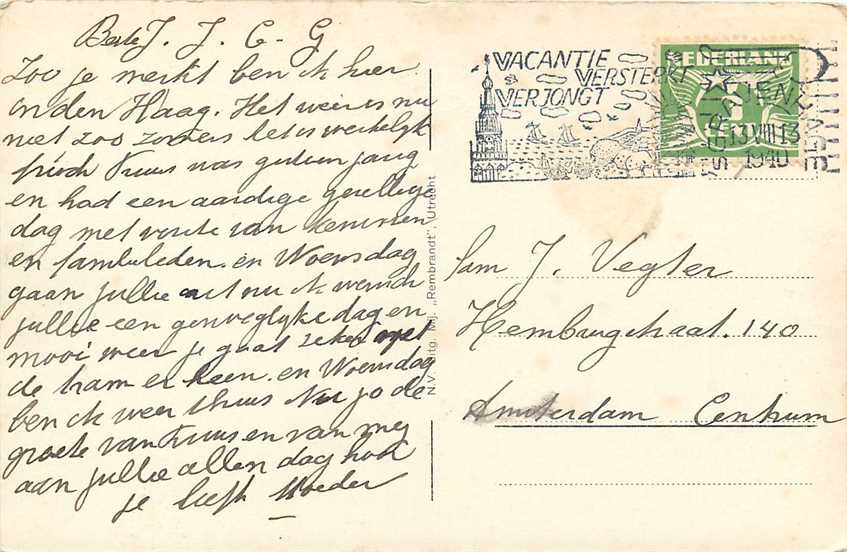 Beste J. J. C - G
Zoo je merkt ben ik hier
in den Haag. Het weer is nu
niet zoo zomers het is werkelijk
frisch Truus was gisteren jarig
en had een aardige gezellige
dag met visite van kennissen
en familieleden. en Woensdag
gaan jullie uit nu ik wensch
jullie een genoeglijke dag en
mooi weer je gaat zeker met
de tram er heen. en Woensdag
ben ik weer thuis Nu Jo de
groete van Truus en van mij
aan jullie allen dag hoor
je liefh Moeder
N.V. Uitg. Mij. „Rembrandt", Utrecht
VACANTIE
VERSTERKT
VERJONGT
NEDERLAND
13 VIII 13
1940
Fam J. Vegter
Hembrugstraat. 140
Amsterdam Centrum